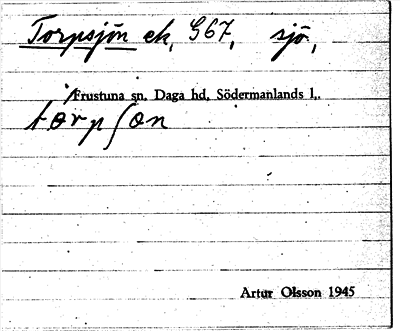 Torpsjön ek, G67, sjö,
Frustuna sn. Daga hd. Södermanlands l..
Artur Olsson 1945